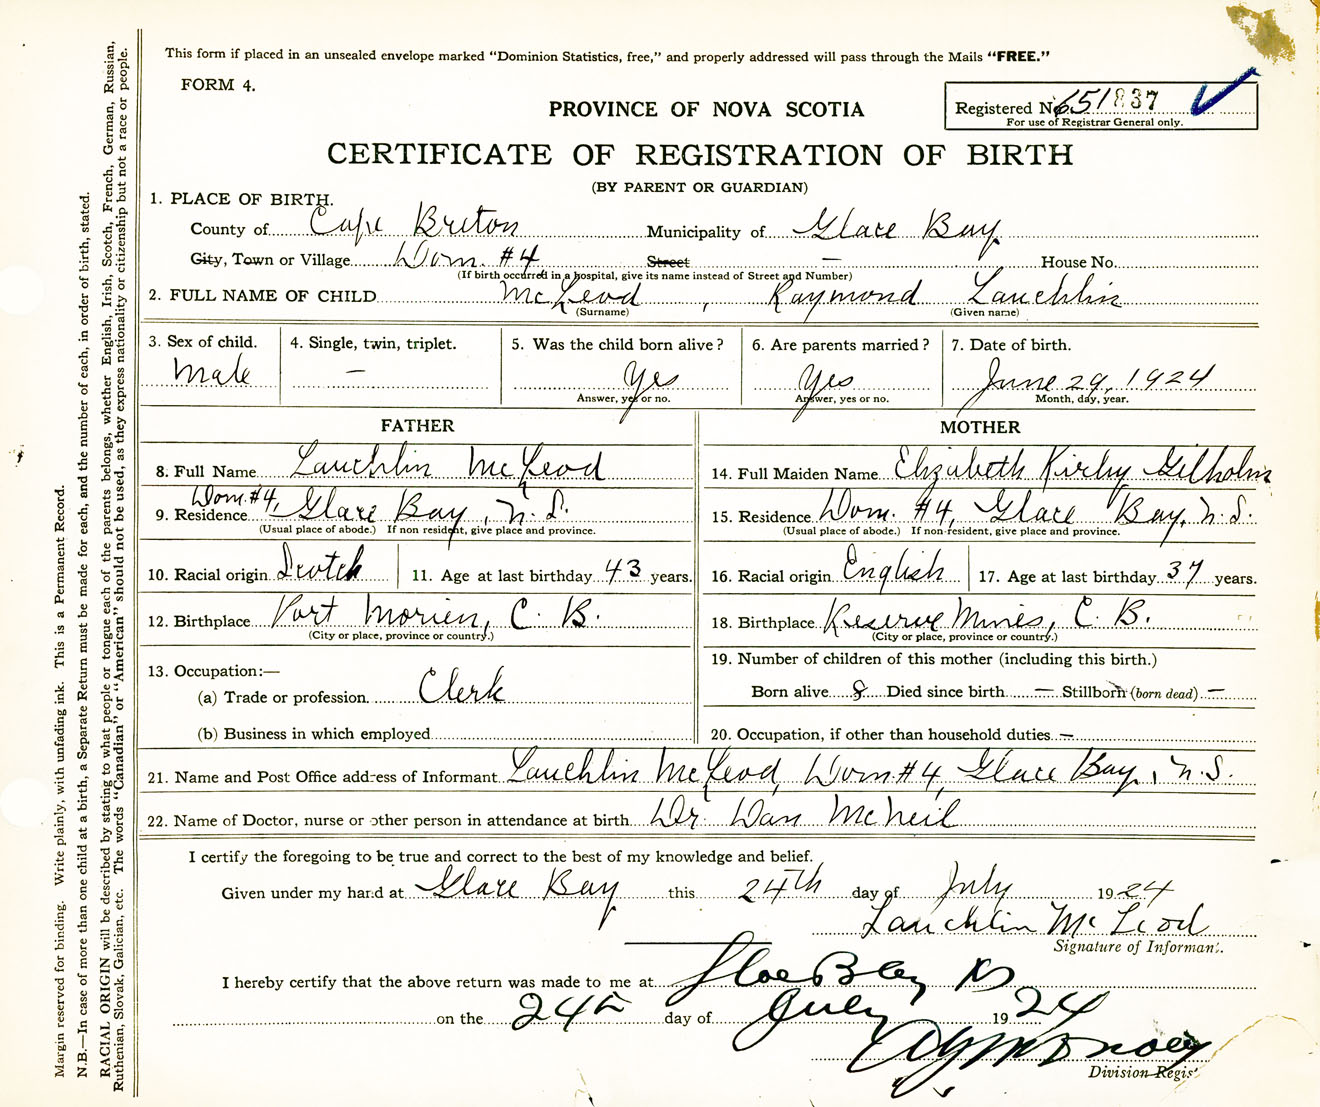 This form if placed in an unsealed envelope marked "Dominion Statistics, free," and properly addressed will pass through the Mails "FREE."
FORM 4.
PROVINCE OF NOVA SCOTIA
Registered No. 651837
For use of Registrar General only.
CERTIFICATE OF REGISTRATION OF BIRTH
(BY PARENT OR GUARDIAN)
1. PLACE OF BIRTH.
County of Cape Breton Municipality of Glace Bay
City, Town or Village Dom. #4 Street — House No.
(If birth occurred in a hospital, give its name instead of Street and Number)
2. FULL NAME OF CHILD McLeod, Raymond Lauchlin
(Surname) (Given name)
3. Sex of child. 4. Single, twin, triplet. 5. Was the child born alive? 6. Are parents married? 7. Date of birth.
Male — Yes Yes June 29, 1924
Answer, yes or no. Answer, yes or no. Month, day, year.
FATHER MOTHER
8. Full Name Lauchlin McLeod 14. Full Maiden Name Elizabeth Kirby Gilholm
9. Residence Dom. #4, Glace Bay, N.S. 15. Residence Dom. #4, Glace Bay, N.S.
(Usual place of abode.) If non resident, give place and province. (Usual place of abode.) If non-resident, give place and province.
10. Racial origin Scotch 11. Age at last birthday 43 years. 16. Racial origin English 17. Age at last birthday 37 years.
12. Birthplace Port Morien, C. B. 18. Birthplace Reserve Mines, C. B.
(City or place, province or country.) (City or place, province or country.)
13. Occupation:— 19. Number of children of this mother (including this birth.)
(a) Trade or profession. Clerk Born alive 8 Died since birth — Stillborn (born dead) —
(b) Business in which employed 20. Occupation, if other than household duties —
21. Name and Post Office address of Informant Lauchlin McLeod, Dom #4, Glace Bay, N.S.
22. Name of Doctor, nurse or other person in attendance at birth Dr. Dan McNeil
I certify the foregoing to be true and correct to the best of my knowledge and belief.
Given under my hand at Glace Bay this 24th day of July 1924
Lauchlin McLeod
Signature of Informant.
I hereby certify that the above return was made to me at Glace Bay NS
on the 24th day of July 1924
Division Regis
Margin reserved for binding. Write plainly, with unfading ink. This is a Permanent Record.
N.B.—In case of more than one child at a birth, a Separate Return must be made for each, and the number of each, in order of birth, stated.
RACIAL ORIGIN will be described by stating to what people or tongue each of the parents belongs, whether English, Irish, Scotch, French, German, Russian,
Ruthenian, Slovak, Galician, etc. The words "Canadian" or "American" should not be used, as they express nationality or citizenship but not a race or people.